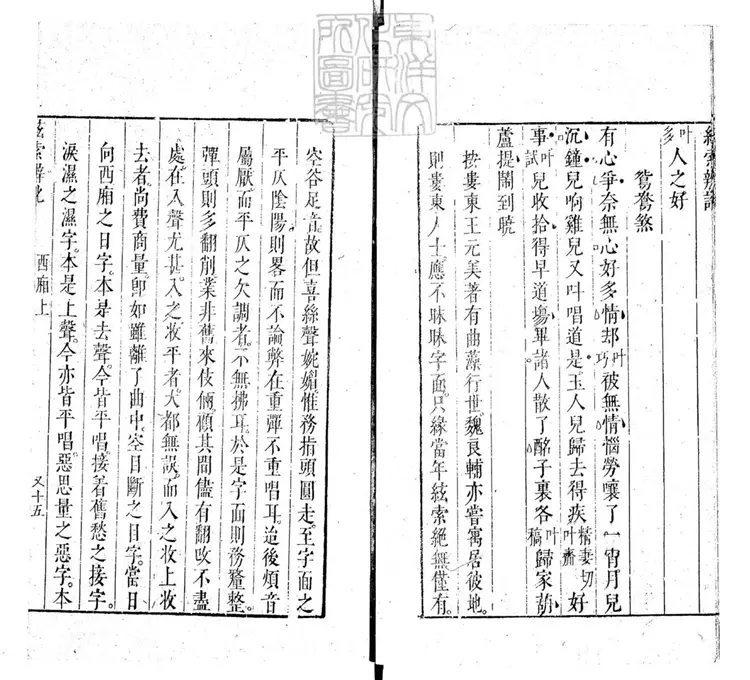 絃索辨訛
人之好
叶多
鴛鴦煞
有心爭奈無心好多情却被無情惱勞嚷了一宵月兒
叶巧
沉鐘兒响雞兒又叫唱道是玉人兒歸去得疾好
精妻切
叶齋
事兒收拾得早道塲畢諸人散了酩子裏各歸家葫
叶試
叶稿
蘆提閙到曉
按婁東王元美著有曲藻行世魏良輔亦嘗寓居彼地。
則婁東人士應不昧昧字面。只緣當年絃索絕無僅有。
空谷足音。故但喜絲聲婉媚惟務指頭圓走。至字面之
平仄陰陽則畧而不論弊在重彈不重唱耳。迨後煩音
屬厭。而平仄之欠調者。不無拂耳。於是字面則務釐整。
彈頭則多翻削業非舊來伎倆。顧其間儘有翻改不盡
處。在入聲尤甚。入之收平者。大都無誤。而入之收上收
去者。尚費商量。卽如雖離了曲中。空目斷之目字。當日
向西廂之日字。本是去聲。今皆平唱。接着舊愁之接字。
淚濕之濕字。本是上聲。今亦皆平唱。惡思量之惡字。本
西廂上
又十五